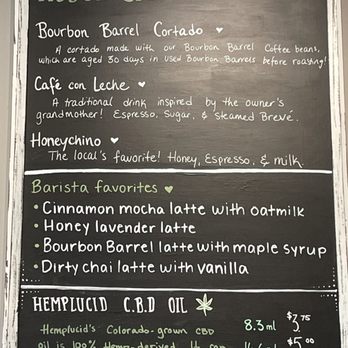 Bourbon Barrel Cortado
A cortado made with our Bourbon Barrel Coffee beans,
which are aged 30 days in used Bourbon Barrels before roasting!
Café con Leche
A traditional drink inspired by the owner's
grandmother! Espresso, Sugar, & Steamed Breve.
Honeychino
The local's favorite! Honey, Espresso, & milk.
Barista favorites
• Cinnamon mocha latte with oatmilk
• Honey lavender latte
• Bourbon Barrel latte with maple syrup
• Dirty chai latte with vanilla
HEMPLUCID C.B.D OIL
Hemplucid's Colorado-grown CBD 8.3ml $3.75
oil is 100% Hemp-derived. $5.00